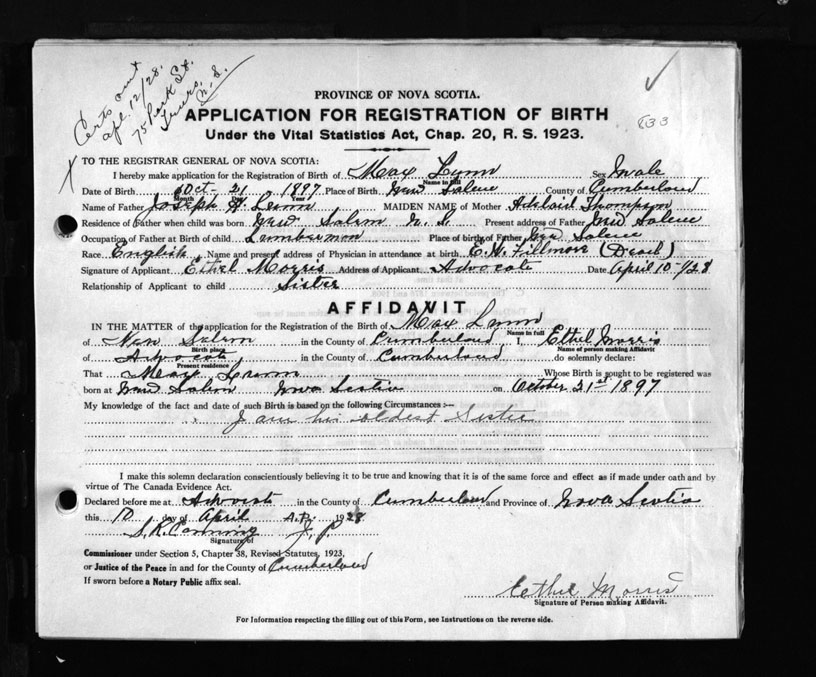 Certs sent
apl. 12/28.
75 Park St.
Truro.
N. S.
633
PROVINCE OF NOVA SCOTIA.
APPLICATION FOR REGISTRATION OF BIRTH
Under the Vital Statistics Act, Chap. 20, R. S. 1923.
TO THE REGISTRAR GENERAL OF NOVA SCOTIA:
I hereby make application for the Registration of Birth of Max Lynn Sex Male
Name in full
Date of Birth Oct 21 1897 Place of Birth New Salem County of Cumberland
Month Day Year
Name of Father Joseph Lynn MAIDEN NAME of Mother Adelaid Thompson
Residence of Father when child was born New Salem N. S. Present address of Father New Salem
Occupation of Father at Birth of child Lumberman Place of birth of Father New Salem
Race English Name and present address of Physician in attendance at birth E. H. Fillmore (Dead)
Signature of Applicant Ethel Morris Address of Applicant Advocate Date April 10-/28
Relationship of Applicant to child Sister
AFFIDAVIT
IN THE MATTER of the application for the Registration of the Birth of Max Lynn
Name in full
of New Salem in the County of Cumberland I, Ethel Morris
Birth place Name of person making Affidavit
of Advocate, in the County of Cumberland do solemnly declare:
Present residence
That Max Lynn Whose Birth is sought to be registered was
born at New Salem Nova Scotia on October 21st 1897
My knowledge of the fact and date of such Birth is based on the following Circumstances:—
I am his oldest Sister
I make this solemn declaration conscientiously believing it to be true and knowing that it is of the same force and effect as if made under oath and by
virtue of The Canada Evidence Act.
Declared before me at Advocate in the County of Cumberland and Province of Nova Scotia
this 10 day of April A.D. 1928
S. K. Canning J. P.
Signature of
Commissioner under Section 5, Chapter 38, Revised Statutes, 1923,
or Justice of the Peace in and for the County of Cumberland
If sworn before a Notary Public affix seal.
Ethel Morris
Signature of Person making Affidavit.
For Information respecting the filling out of this Form, see Instructions on the reverse side.